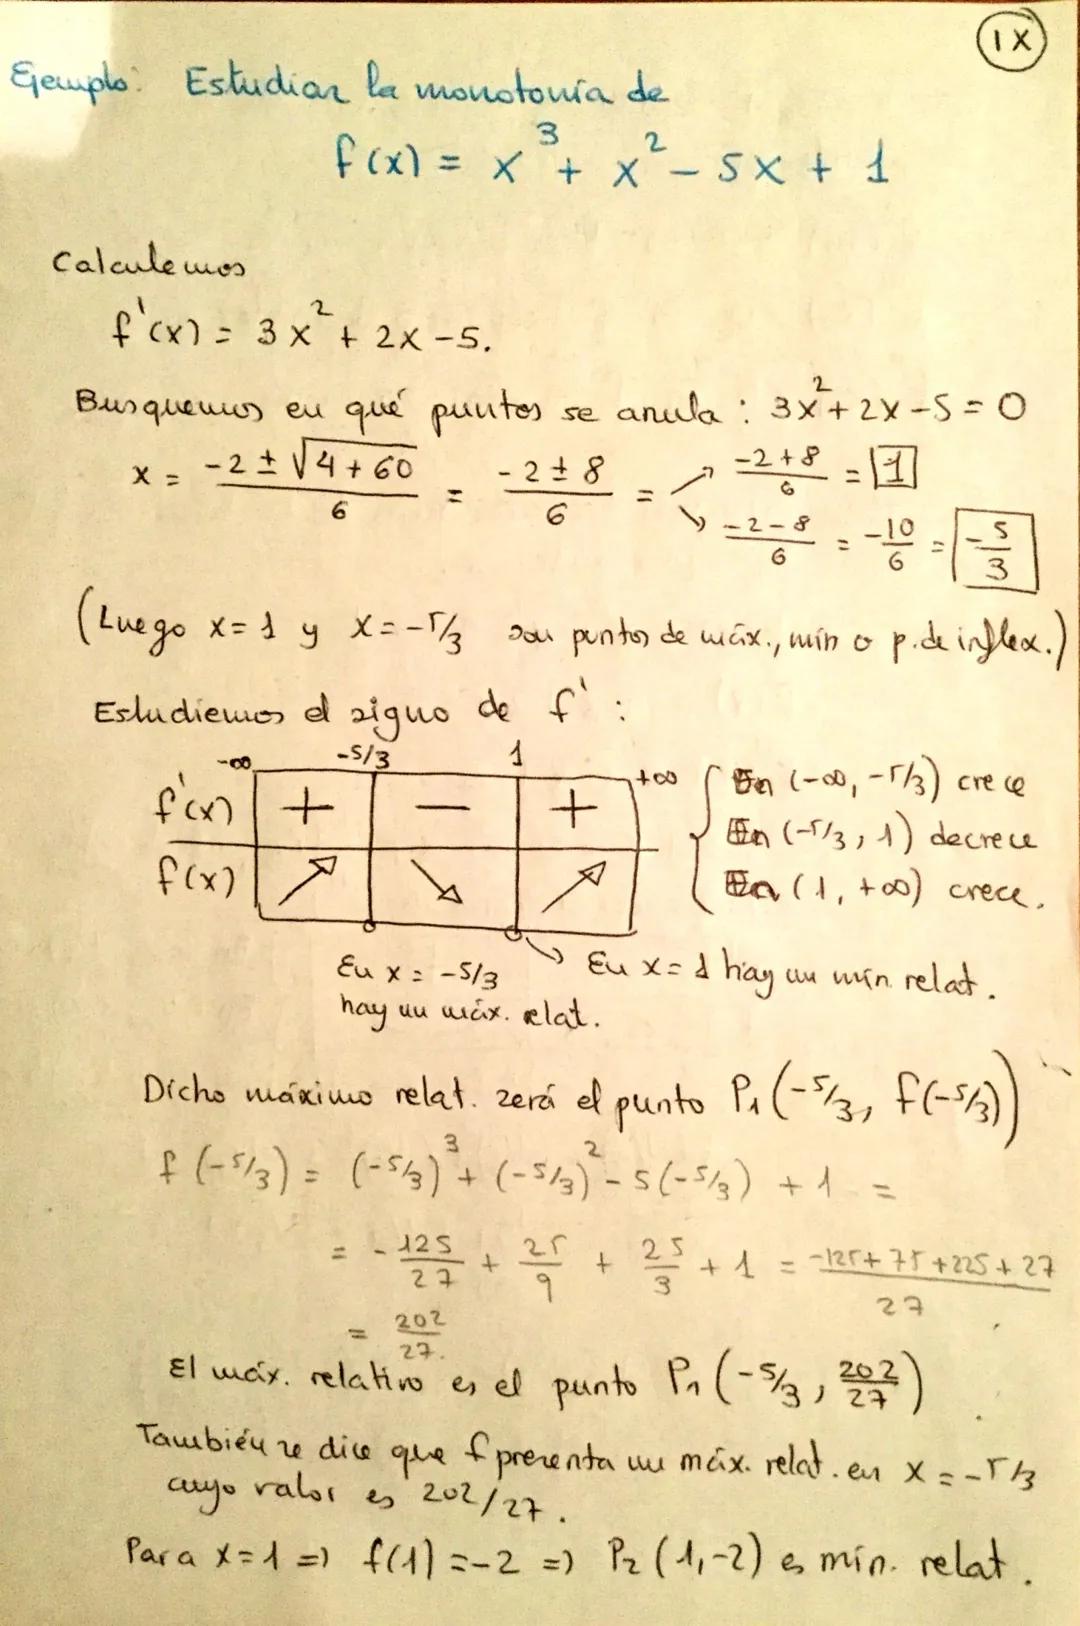 IX
Ejemplo: Estudiar la monotonía de
f(x) = x³ + x² - 5x + 1
Calculemos
f'(x) = 3x² + 2x - 5.
Busquemos en qué puntos se anula: 3x² + 2x - 5 = 0
x = (-2 ± √(4 + 60))/6 = (-2 ± 8)/6 = ↗ (-2 + 8)/6 = 1
↘ (-2 - 8)/6 = -10/6 = -5/3
(Luego x = 1 y x = -5/3 son puntos de máx., mín o p. de inflex.)
Estudiemos el signo de f' :
-∞ -5/3 1 +∞
f'(x) + - + En (-∞, -5/3) crece
En (-5/3, 1) decrece
f(x) ↗ ↘ ↗ En (1, +∞) crece.
En x = -5/3 hay un máx. relat.
En x = 1 hay un mín. relat.
Dicho máximo relat. será el punto P₁(-5/3, f(-5/3))
f(-5/3) = (-5/3)³ + (-5/3)² - 5(-5/3) + 1 =
= -125/27 + 25/9 + 25/3 + 1 = (-125 + 75 + 225 + 27)/27
= 202/27.
El máx. relativo es el punto P₁(-5/3, 202/27)
También se dice que f presenta un máx. relat. en x = -5/3
cuyo valor es 202/27.
Para x = 1 => f(1) = -2 => P₂(1, -2) es mín. relat.